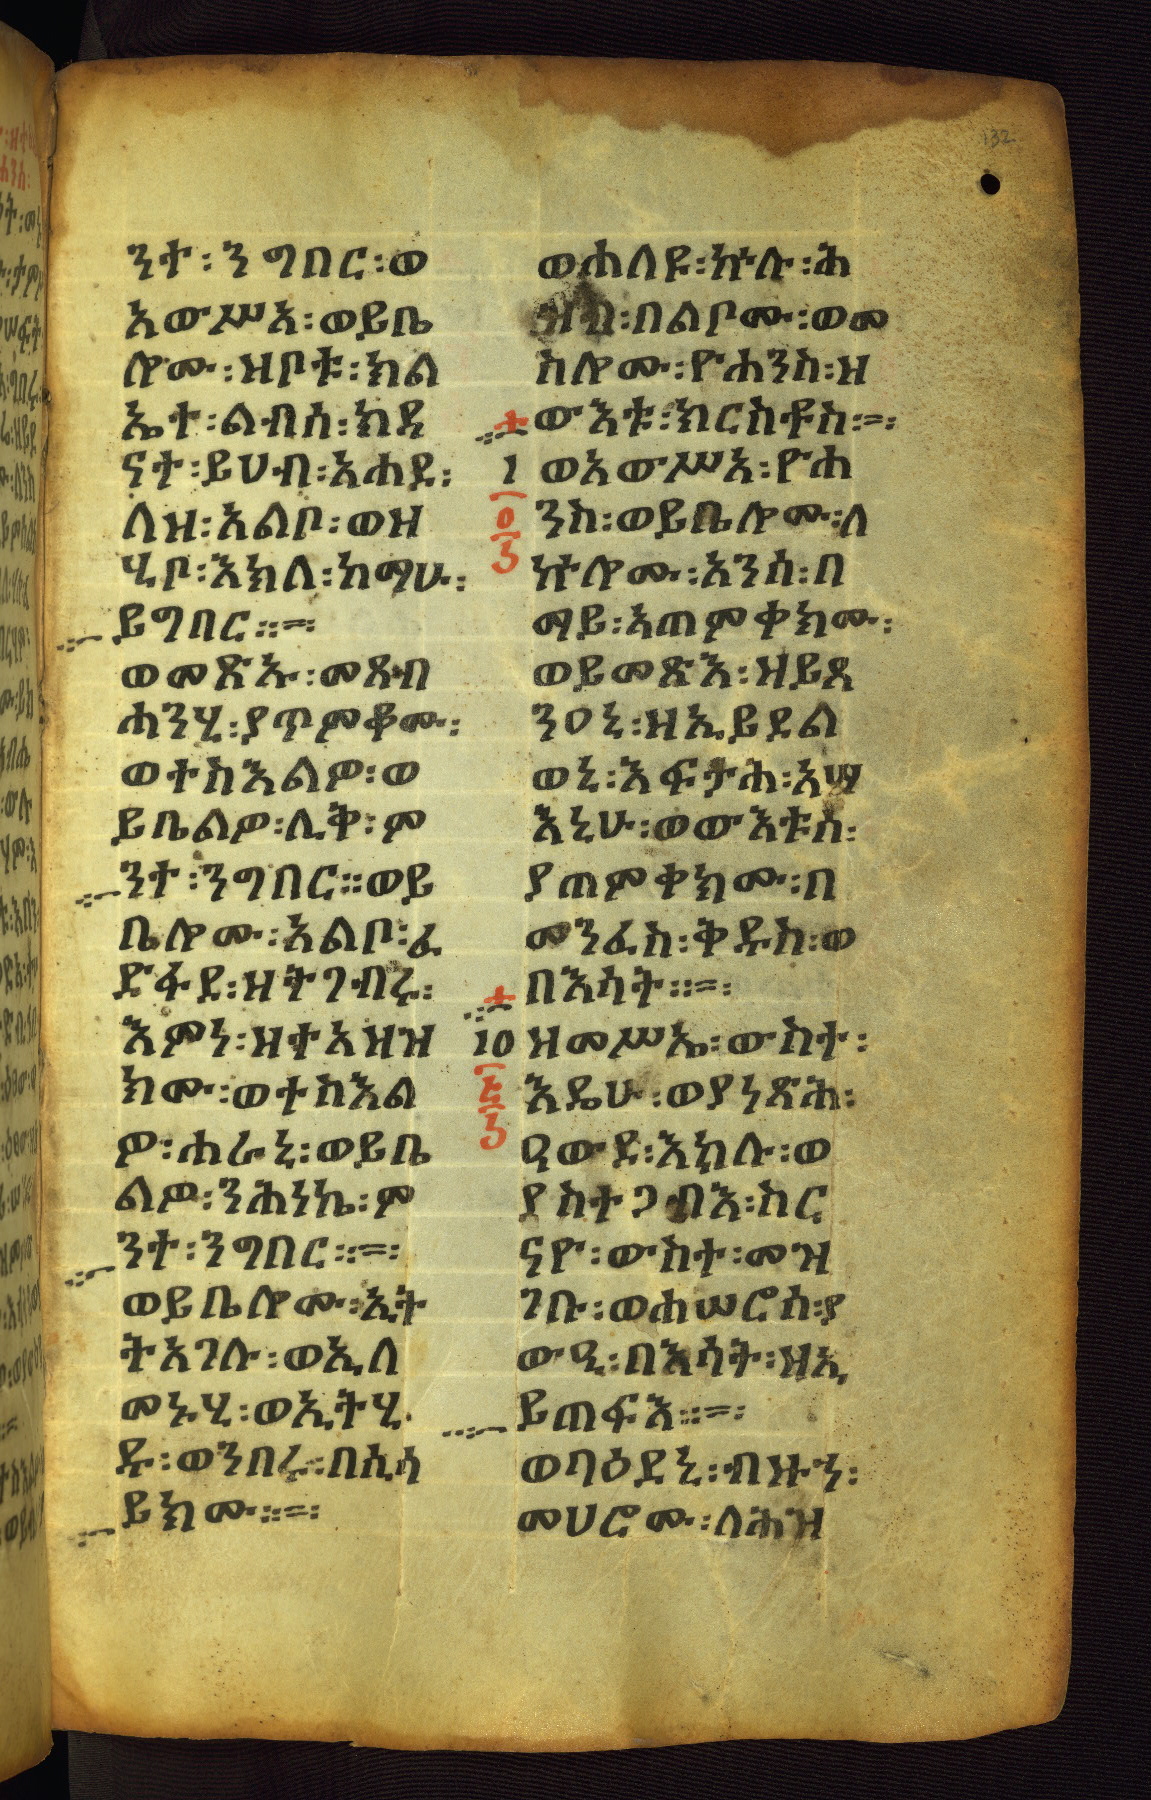 132
ንተ፡ንግበር፡ወ
አውሥአ፡ወይቤ
ሎሙ፡ዝቦቱ፡ክል
ኤተ፡ልብሰ፡ክዳ
ናተ፡ይሀብ፡አሐደ፡
ለዝ፡አልቦ፡ወዝ
ሂቦ፡እክለ፡ከማሁ፡
ይግበር፡፡=፡
ወመጽኡ፡መጸብ
ሓንሂ፡ያጥምቆሙ፡
ወተስእልዎ፡ወ
ይቤልዎ፡ሊቅ፡ም
ንተ፡ንግበር፡፡ወይ
ቤሎሙ፡አልቦ፡ፈ
ድፋደ፡ዝትገብሩ፡
እምነ፡ዝተአዝዝ
ክሙ፡ወተስእል
ዎ፡ሐራኒ፡ወይቤ
ልዎ፡ንሕነኬ፡ም
ንተ፡ንግበር፡፡=፡
ወይቤሎሙ፡ኢት
ትአገሉ፡ወኢለ
መኑሂ፡ወኢትሂ
ዱ፡ወንበሩ፡በሲሳ
ይክሙ፡፡=፡
ወሐለዩ፡ኵሉ፡ሕ
ዝብ፡በልቦሙ፡ወመ
ስሎሙ፡ዮሐንስ፡ዝ
ውእቱ፡ክርስቶስ፡=፡
ወአውሥአ፡ዮሐ
ንስ፡ወይቤሎሙ፡ለ
ኵሎሙ፡አንሰ፡በ
ማይ፡አጠምቀክሙ፡
ወይመጽእ፡ዝይጸ
ንዐኒ፡ዝኢይደል
ወኒ፡እፍታሕ፡አሣ
እኒሁ፡ወውእቱሰ፡
ያጠምቀክሙ፡በ
መንፈስ፡ቅዱስ፡ወ
በእሳት፡፡=፡
ዝመሥኤ፡ውስተ፡
እዴሁ፡ወያነጽሕ፡
ዓውደ፡እክሉ፡ወ
ያስተጋብእ፡ስር
ናዮ፡ውስተ፡መዝ
ገቡ፡ወሐሠሮሰ፡ያ
ውዒ፡በእሳት፡ዝኢ
ይጠፍእ፡፡=፡
ወባዕደኒ፡ብዙኀ፡
መሀሮሙ፡ለሕዝ